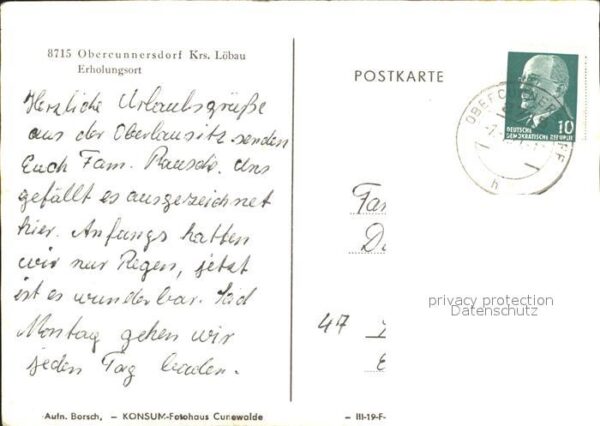 8715 Obercunnersdorf Krs. Löbau
Erholungsort
Herzliche Urlaubsgrüße
aus der Oberlausitz senden
Euch Fam. Rausch. Uns
gefällt es ausgezeichnet
hier. Anfangs hatten
wir nur Regen, jetzt
ist es wunderbar. Seid
Montag gehen wir
jeden Tag baden.
Aufn. Borsch, – KONSUM-Fotohaus Cunewalde
POSTKARTE
DEUTSCHE
DEMOKRATISCHE REPUBLIK
10
Fam
47
privacy protection
Datenschutz
III-19-F-